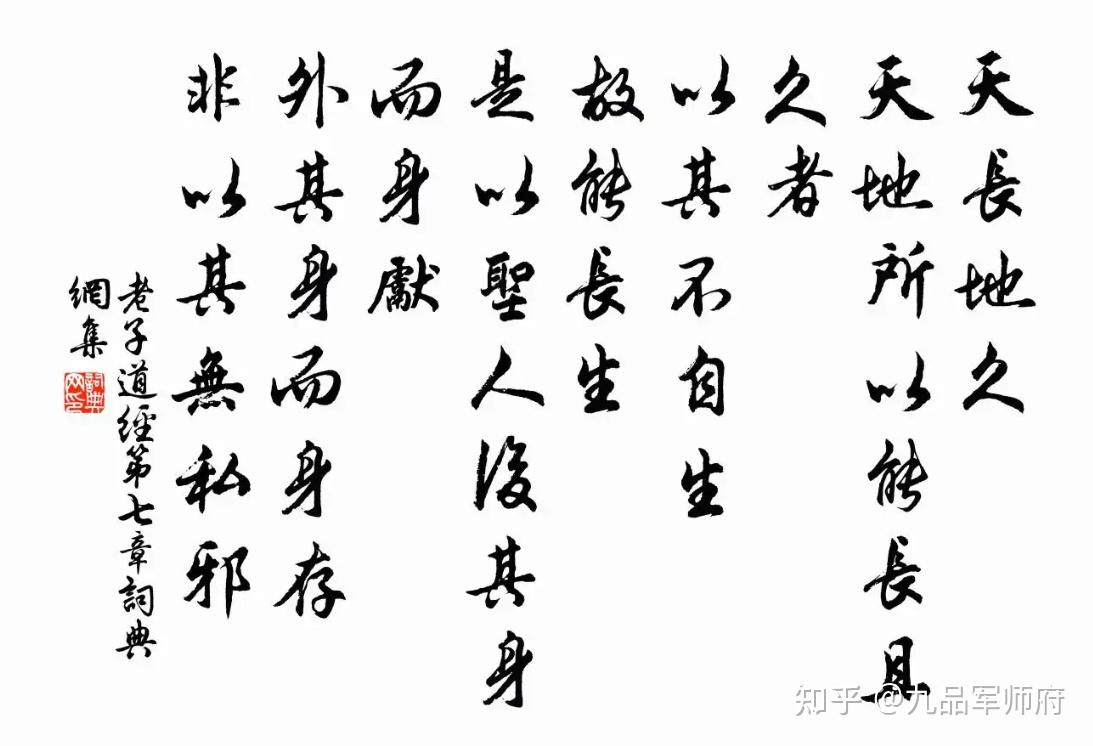 天長地久
天地所以能長且
久者
以其不自生
故能長生
是以聖人後其身
而身獻
外其身而身存
非以其無私邪
老子道經第七章詞典
網集
詞典
网印
知乎 @九品军师府